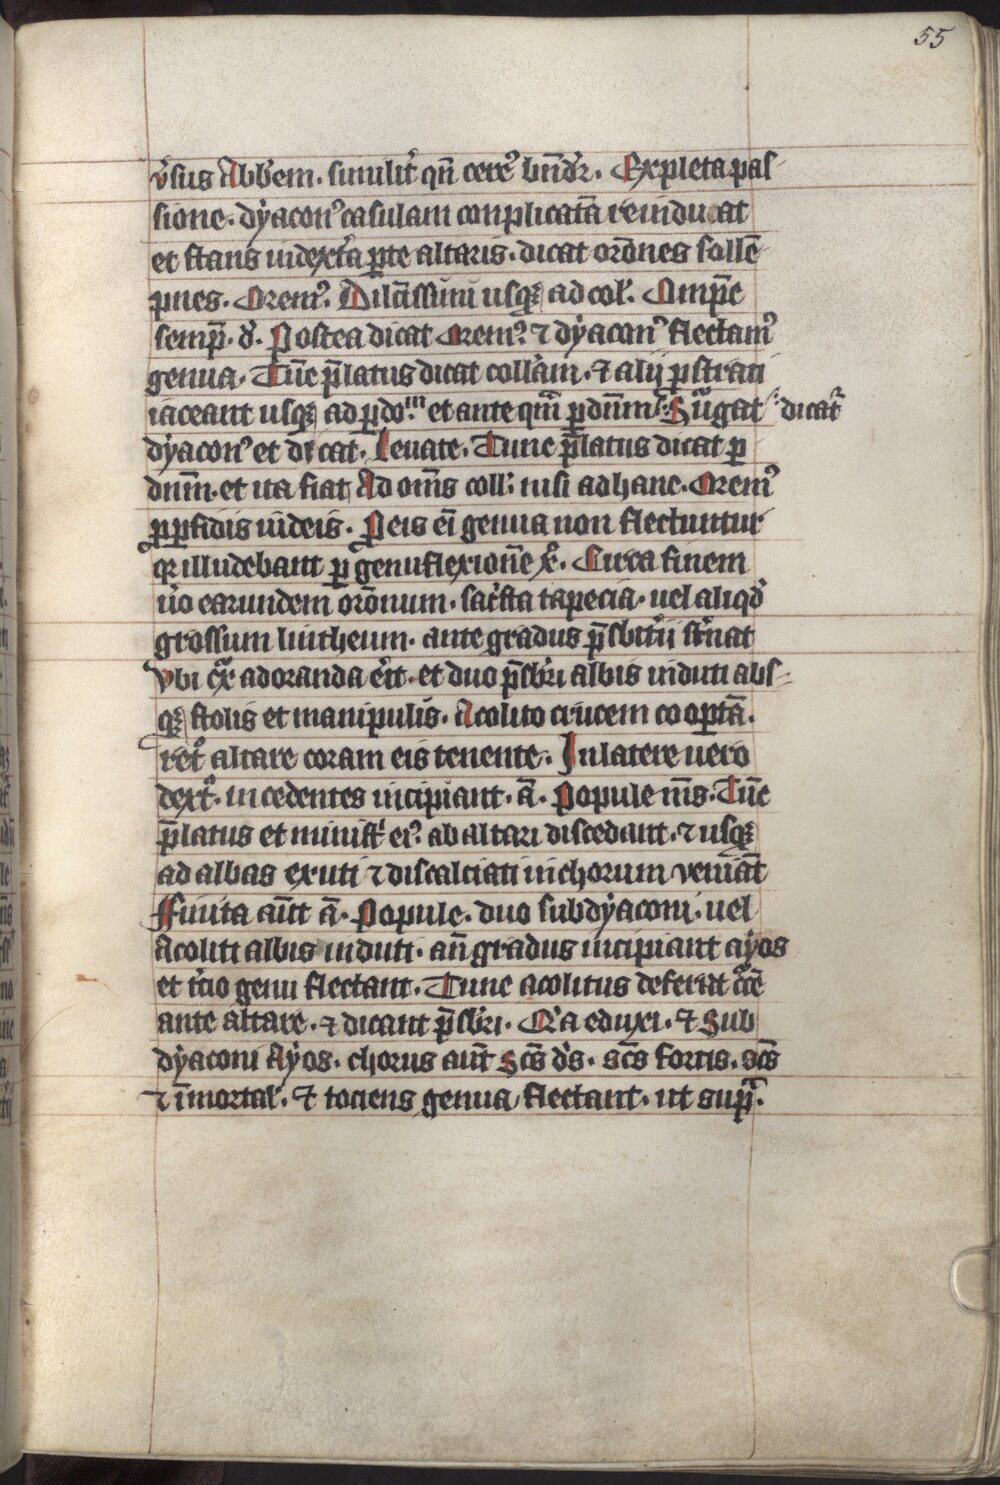 55
v̓sus Abb̓em. similit̓ qn̄ cere⁹ bn̄d̓r. Expleta pas
sione. dẏacon⁹ casulam conplicatā reinducat
et stans in dext̓a ꝑte altaris. dicat or̄ones sollē
pnes. Orem⁹. Dilc̄issimi usqꝫ ad col̓. Omp̄e
semp̄. d̓. Postea dicat Orem⁹. ⁊ dẏacon⁹ flectam⁹
genua. Tūc p̄latus dicat coll̓am. ⁊ alij ꝓstrati
iaceant usqꝫ ad ꝑ do.ᵐ et ante qm̄ ꝑ dn̄m Sur̓gat dicat̓
dẏacon⁹ et dicat. leuate. Tunc p̄latus dicat ꝑ
dnm̄. et ita fiat Ad om̄s coll̓. nisi ad hanc. Orem⁹
ꝓ ꝑfidis iudeis. Pro eis ei̅ genua non flectuntur
qꝛ illudebant ꝑ genuflexionē x̓. Circa finem
u̓o earundem or̄onum. sac̓sta tapecia. uel aliqd̓
grossum lintheum. ante gradus p̄sbit̓ii st̓nat
vbi cͬx adoranda er̓it. et duo p̄sbr̓i albis induti abs
qꝫ stolis et manipulis. Acolito crucem coop̱tā.
ret̓ altare coram eis tenente. In latere uero
dext̓. incedentes incipiant. a̅. Popule m̄s. Tūc
p̄latus et minist̓ ei⁹ ab altari discedant. ⁊ usqꝫ
ad albas exuti ⁊ discalciati in chorum veniāt
Finita aūt a̅. Popule. duo subdẏaconi. uel
Acoliti albis induti. an̄ gradus incipiant aẏos
et t̓cio genu flectant. Tunc acolitus deferat cͬcē
ante altare. ⁊ dicant p̄sbr̓i. Q̓a eduxi. ⁊ Sub
dẏaconi Aẏos. chorus aūt Sc̄s d̓s. sc̄s fortis. sc̄s
⁊ īmortal̓. ⁊ tociens genua flectant. ut sup̓.